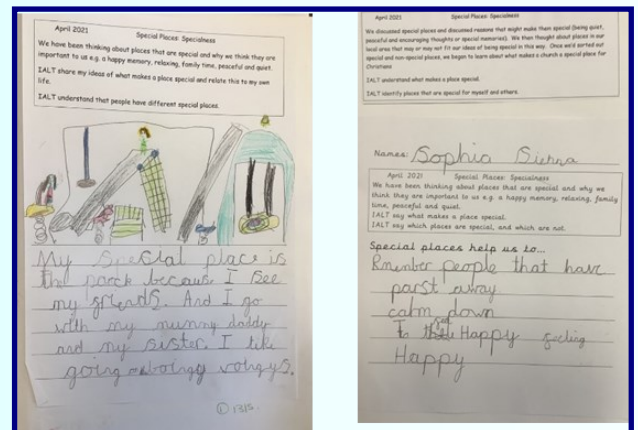 April 2021 Special Places: Specialness
We have been thinking about places that are special and why we think they are
important to us e.g. a happy memory, relaxing, family time, peaceful and quiet.
IALT share my ideas of what makes a place special and relate this to my own
life.
IALT understand that people have different special places.
My Special place is
the parck because I See
my friends. And I go
with my mummy daddy
and my sister. I like
going
April 2021 Special Places: Specialness
We discussed special places and discussed reasons that might make them special (being quiet,
peaceful and encouraging thoughts or special memories). We then thought about places in our
local area that may or may not fit our ideas of being special in this way. Once we'd sorted out
special and non-special places, we began to learn about what makes a church a special place for
Christians
IALT understand what makes a place special.
IALT identify places that are special for myself and others.
Names: Sophia Sienna
April 2021 Special Places: Specialness
We have been thinking about places that are special and why we
think they are important to us e.g. a happy memory, relaxing, family
time, peaceful and quiet.
IALT say what makes a place special.
IALT say which places are special, and which are not.
Special places help us to...
Rnember people that have
parst away
calm down
To Happy feeling
Happy